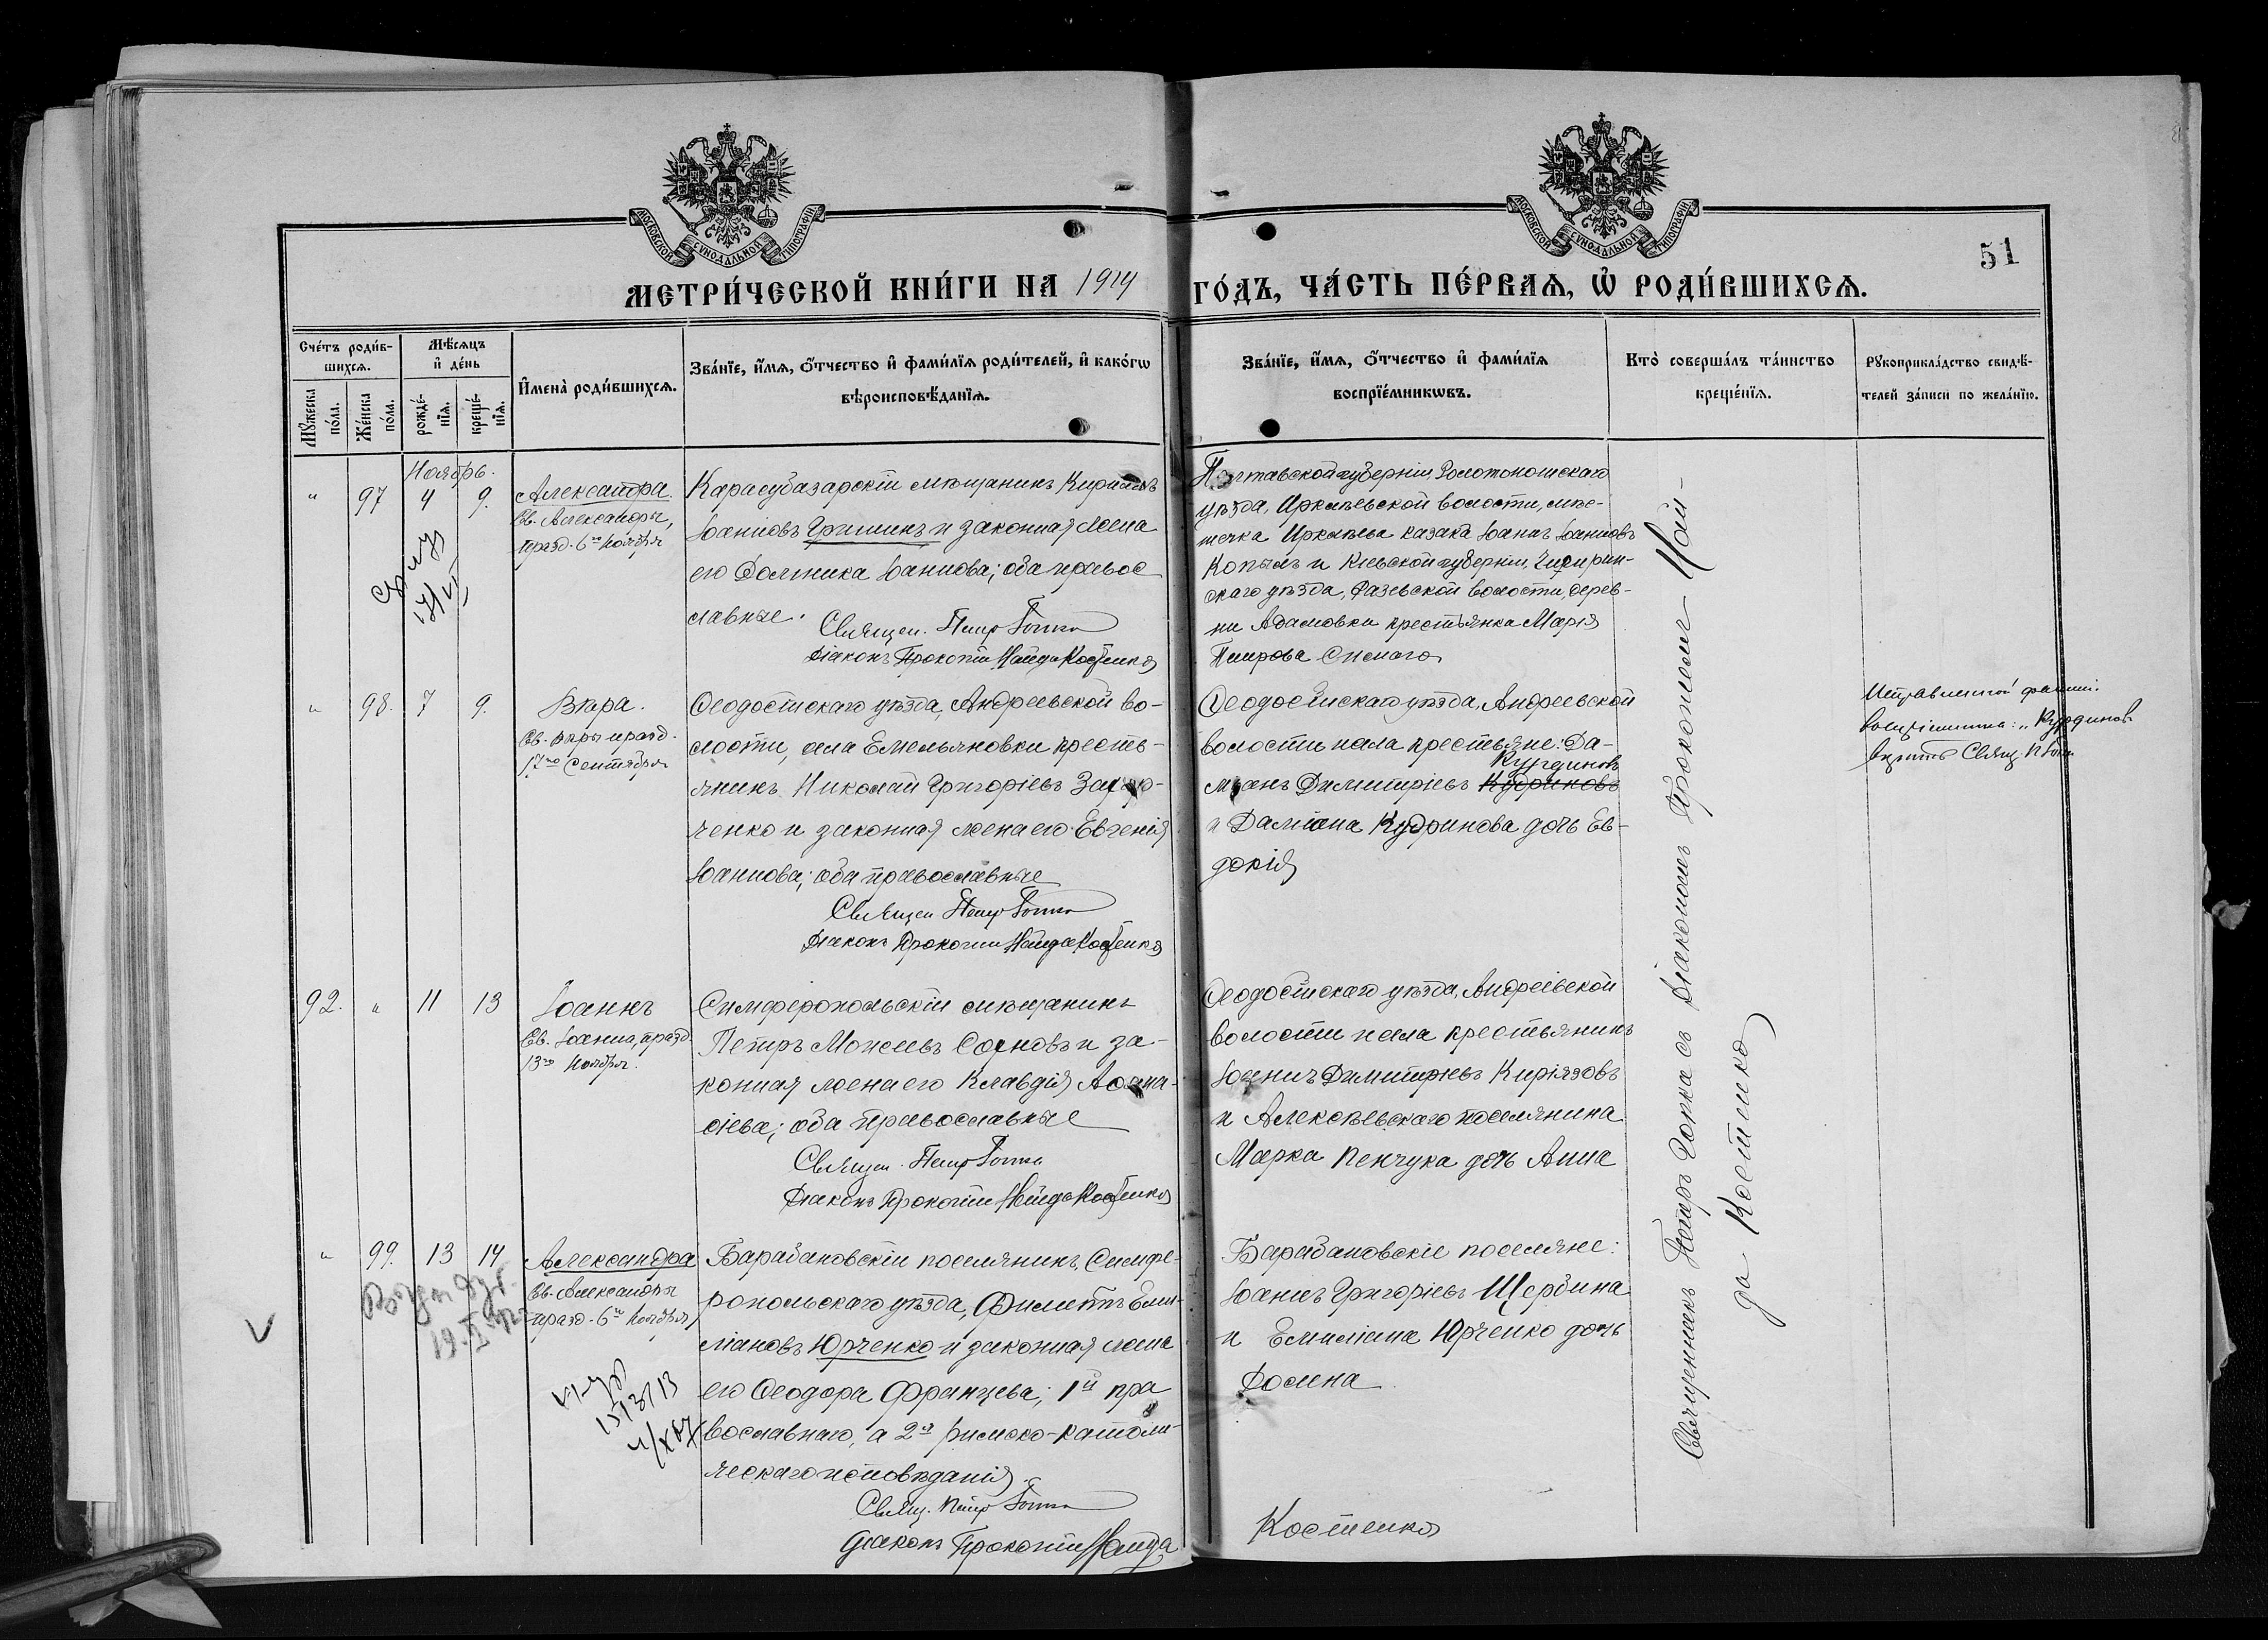 МОСКОВСКОЙ СѴНОДАЛЬНОЙ ТИПОГРАФІИ
МОСКОВСКОЙ СѴНОДАЛЬНОЙ ТИПОГРАФІИ
51
МЕТРИ́ЧЕСКОЙ КНИ́ГИ НА 1914 ГО́ДЪ, ЧА́СТЬ ПЕ́РВАѦ, Ѡ҆ РОДИ́ВШИХСѦ.
Сче́тъ роди́в-
шихсѧ.
Мꙋ́жеска по́ла.
Же́нска по́ла.
Мѣ́сѧцъ и҆ де́нь
рожде́-
нїѧ.
креще́-
нїѧ.
И҆мена̀ роди́вшихсѧ.
Зва́нїе, и҆́мѧ, ѻ҆́тчество и҆ фами́лїѧ роди́телей, и҆ како́гѡ
вѣроисповѣ́данїѧ.
Зва́нїе, и҆́мѧ, ѻ҆́тчество и҆ фами́лїѧ
воспрїе́мникѡвъ.
Кто̀ соверша́лъ та́инство
креще́нїѧ.
Рꙋкоприкла́дство свидѣ́-
телей за́писи по жела́нїю.
Ноябрь.
" 97 4 9.
Александра.
Св. Александры,
празд. 6го Ноября
Карасубазарскій мѣщанинъ Кириллъ
Іоанновъ Гришинъ и законная жена
его Домника Іаннова; оба правос
славные.
Священ. Петръ Гопка
Діаконъ Прокопій Найда Костенко
Полтавской губерніи, Золотоношскаго
уѣзда, Ирклѣевской волости, мѣс-
течка Ирклѣева казакъ Іоаннъ Іоанновъ
Копылъ и Кіевской губерніи, Чигирин-
скаго уѣзда, волости, дерев-
ни Адамовки крестьянка Марія
Петрова
" 98. 7 9.
Вѣра.
Св. Вѣры празд.
17го Сентября
Ѳеодосійскаго уѣзда, Андреевской во-
лости, села Емельяновки кресть-
янинъ Николай Григоріевъ
ченко и законная жена его Евгенія
Іоаннова; оба православные
Священ Петръ Гопка
Діаконъ Прокопій Найда Костенко
Ѳеодосійскаго уѣзда, Андреевской
волости и села крестьяне: Да-
Курдиновъ
міанъ Димитріевъ Кудриновъ
и Даміана Кудринова дочь Ев-
докія
Исправленной фамил.
воспріемника: „Курдиновъ
вѣрить Священ. П Гопка
92. " 11 13
Іоаннъ
Св. Іоанна, празд.
13го Ноября.
Симферопольскій мѣщанинъ
Петръ Моисеевъ Сосновъ и за-
конная жена его Клавдія Аѳана-
сіева; оба православные
Священ. Петръ Гопка
Діаконъ Прокопій Найда Костенко
Ѳеодосійскаго уѣзда, Андреевской
волости и села крестьянинъ
Іоаннъ Димитріевъ Киріязовъ
и Алексѣевскаго поселянина
Марка Пенчука дочь Анна
" 99. 13 14
Александра
Св. Александры
празд. 6го Ноября
Барабановскій поселянинъ, Симфе-
ропольскаго уѣзда, Филиппъ Еми-
ліановъ Юрченко и законная жена
его Ѳеодора Францева; 1й пра
вославнаго, а 2я римско-католи-
ческаго исповѣданія.
Священ. Петръ Гопка
Діаконъ Прокопій Найда
Костенко
Барабановскіе поселяне:
Іоаннъ Григоріевъ Щербина
и Емиліана Юрченко дочь
Домна
Священникъ Петръ Гопка съ діакономъ Прокопіемъ Най-
да Костенко